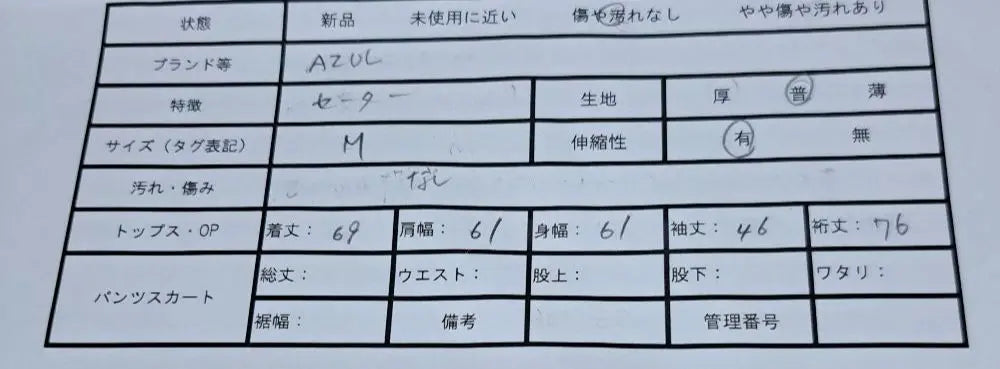 状態 新品 未使用に近い 傷や汚れなし やや傷や汚れあり
ブランド等 AZUL
特徴 セーター 生地 厚 普 薄
サイズ（タグ表記） M 伸縮性 有 無
汚れ・傷み なし
トップス・OP 着丈：69 肩幅：61 身幅：61 袖丈：46 裄丈：76
パンツスカート 総丈： ウエスト： 股上： 股下： ワタリ：
裾幅： 備考 管理番号